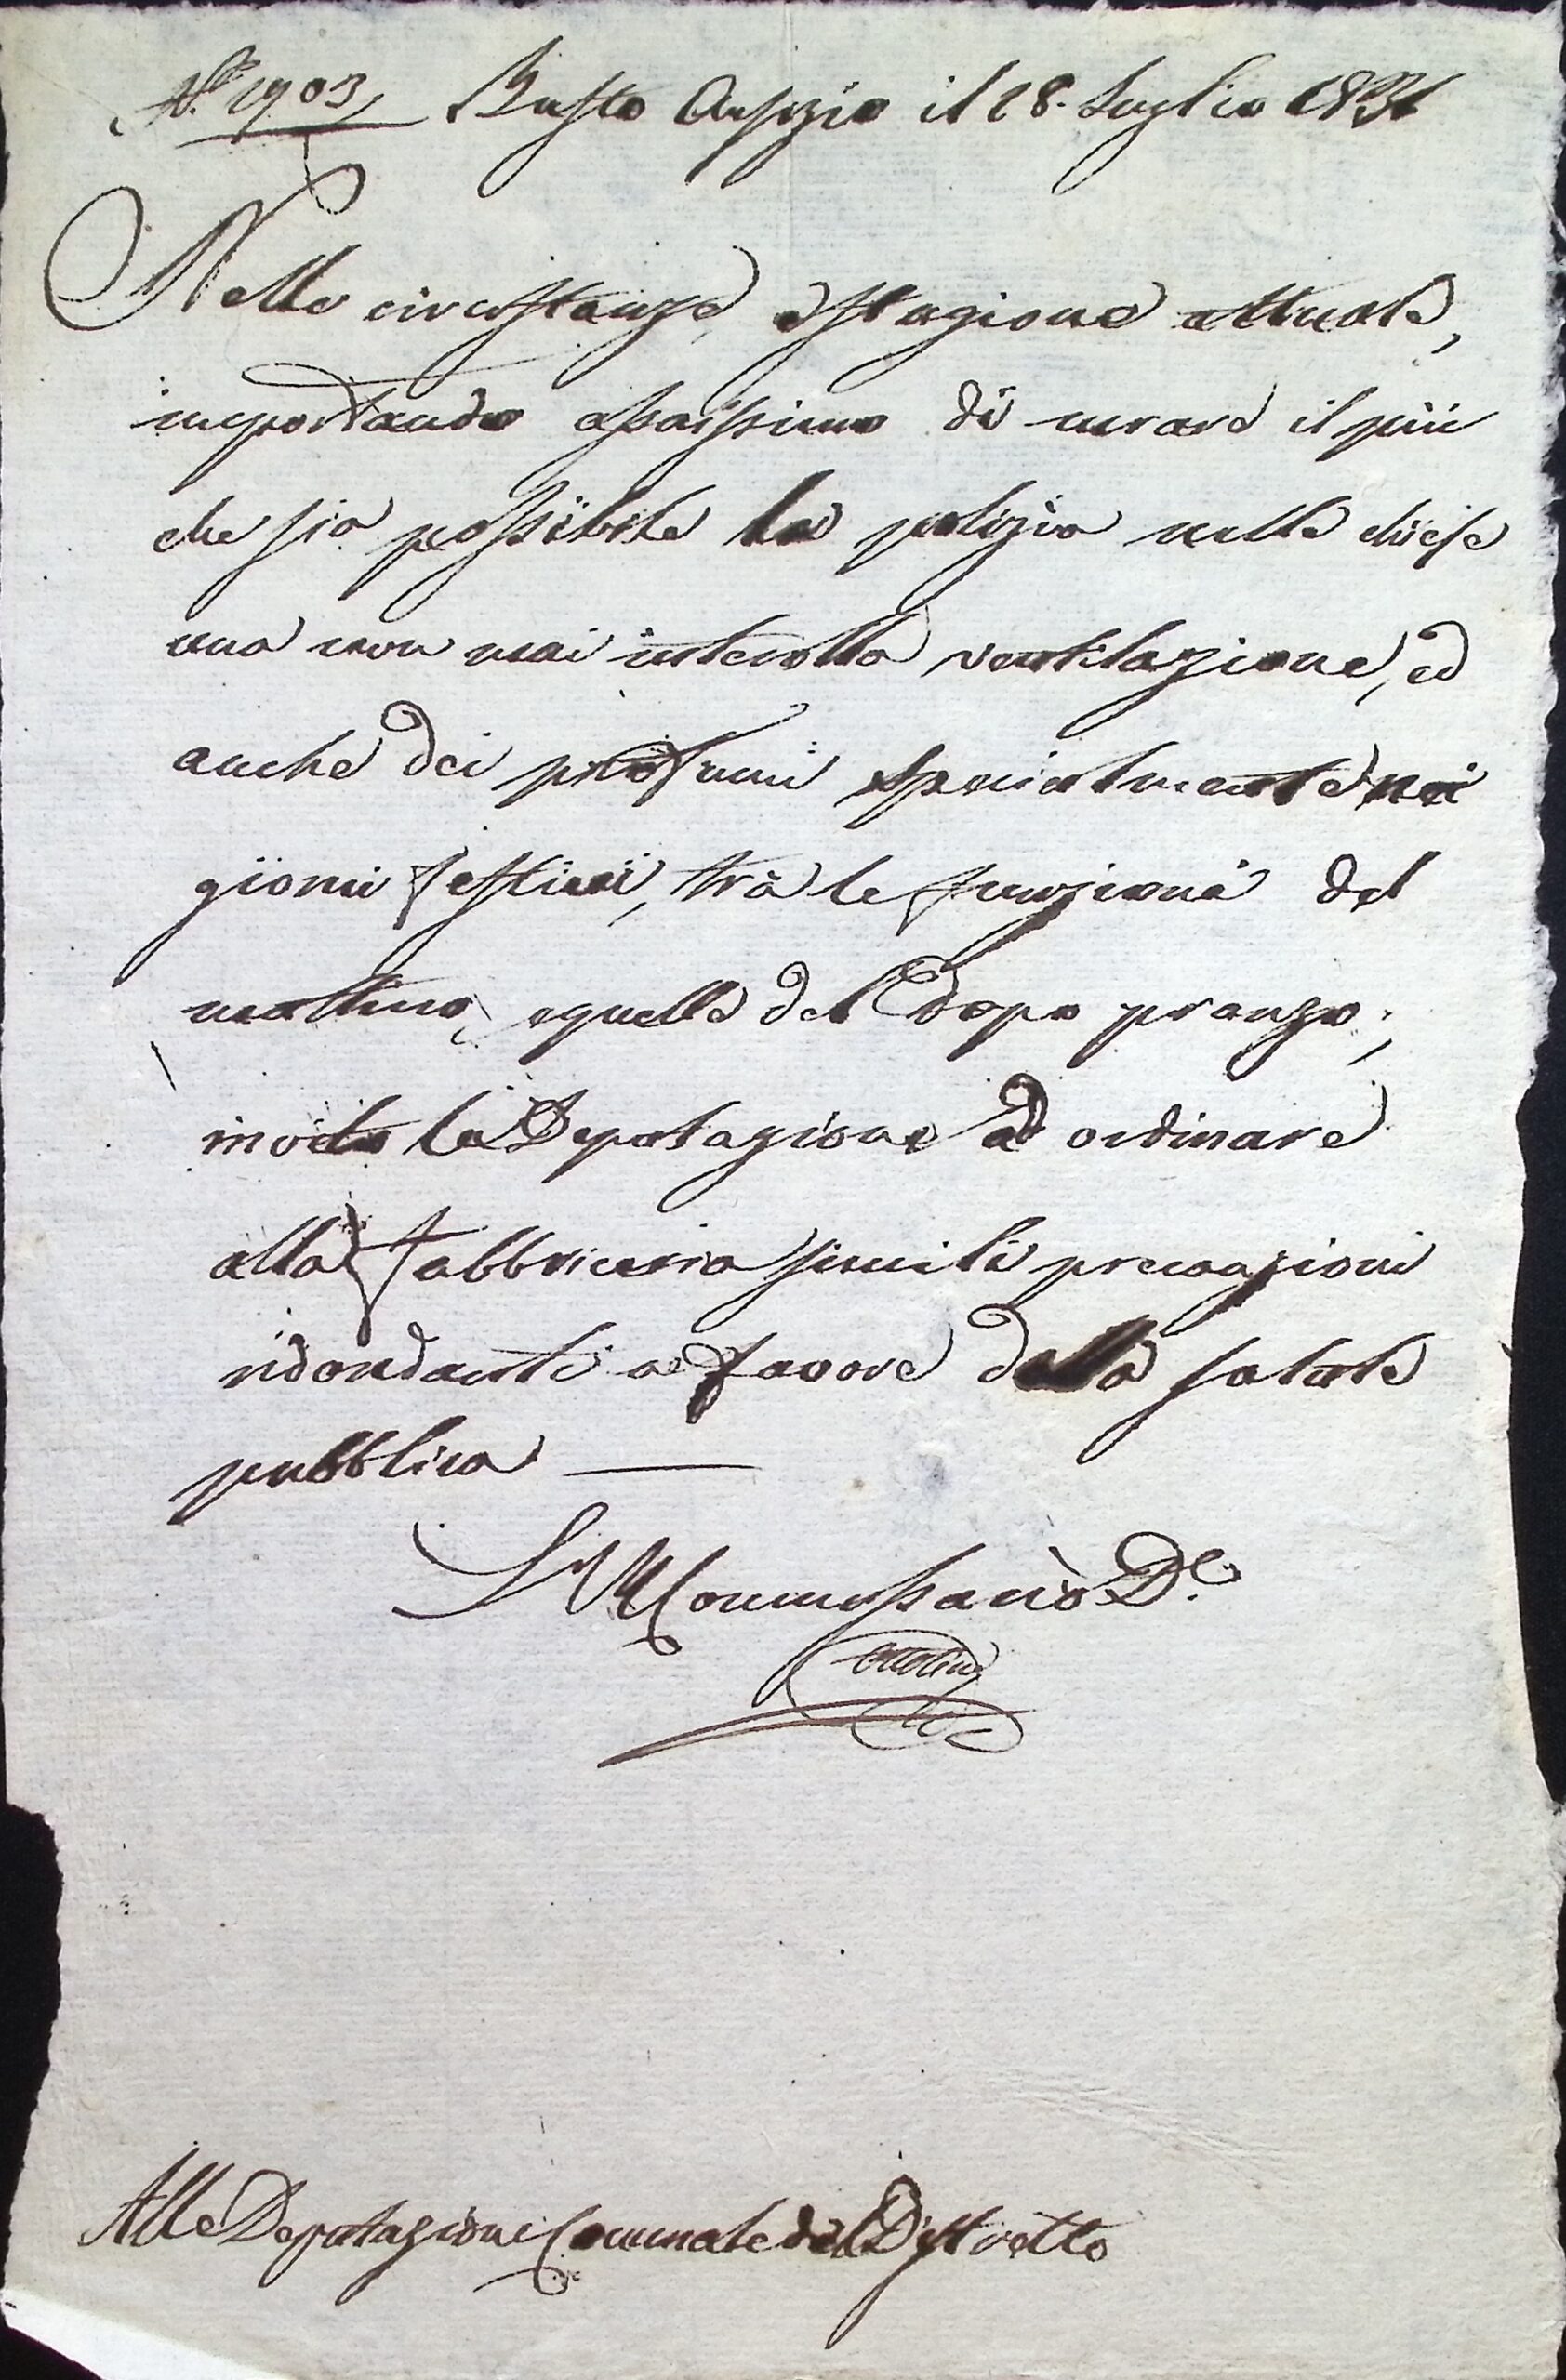 N.° 1903 Busto Arsizio il 18. Luglio 1831
Nelle circostanze, e stagione attuale,
importando assaissimo di curare il più
che sia possibile la polizia nelle chiese
una non mai interotta ventilazione, ed
anche dei profumi specialmente nei
giorni festivi, trà le funzioni del
mattino, e quelle del dopo pranzo;
invito la Deputazione ad ordinare
alla Fabbriceria simili precauzioni
ridondanti a favore della salute
pubblica
Il R Commissario D.e
Alle Deputazioni Comunale del Distretto